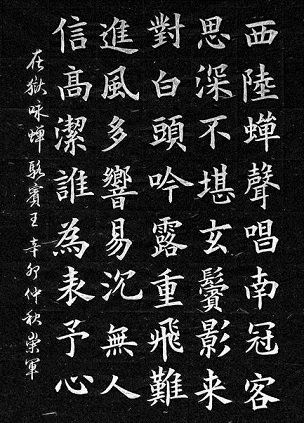 西陸蟬聲唱南冠客
思深不堪玄鬢影来
對白頭吟露重飛難
進風多響易沉無人
信高潔誰為表予心
在獄咏蟬駱賓王辛卯仲秋崇軍